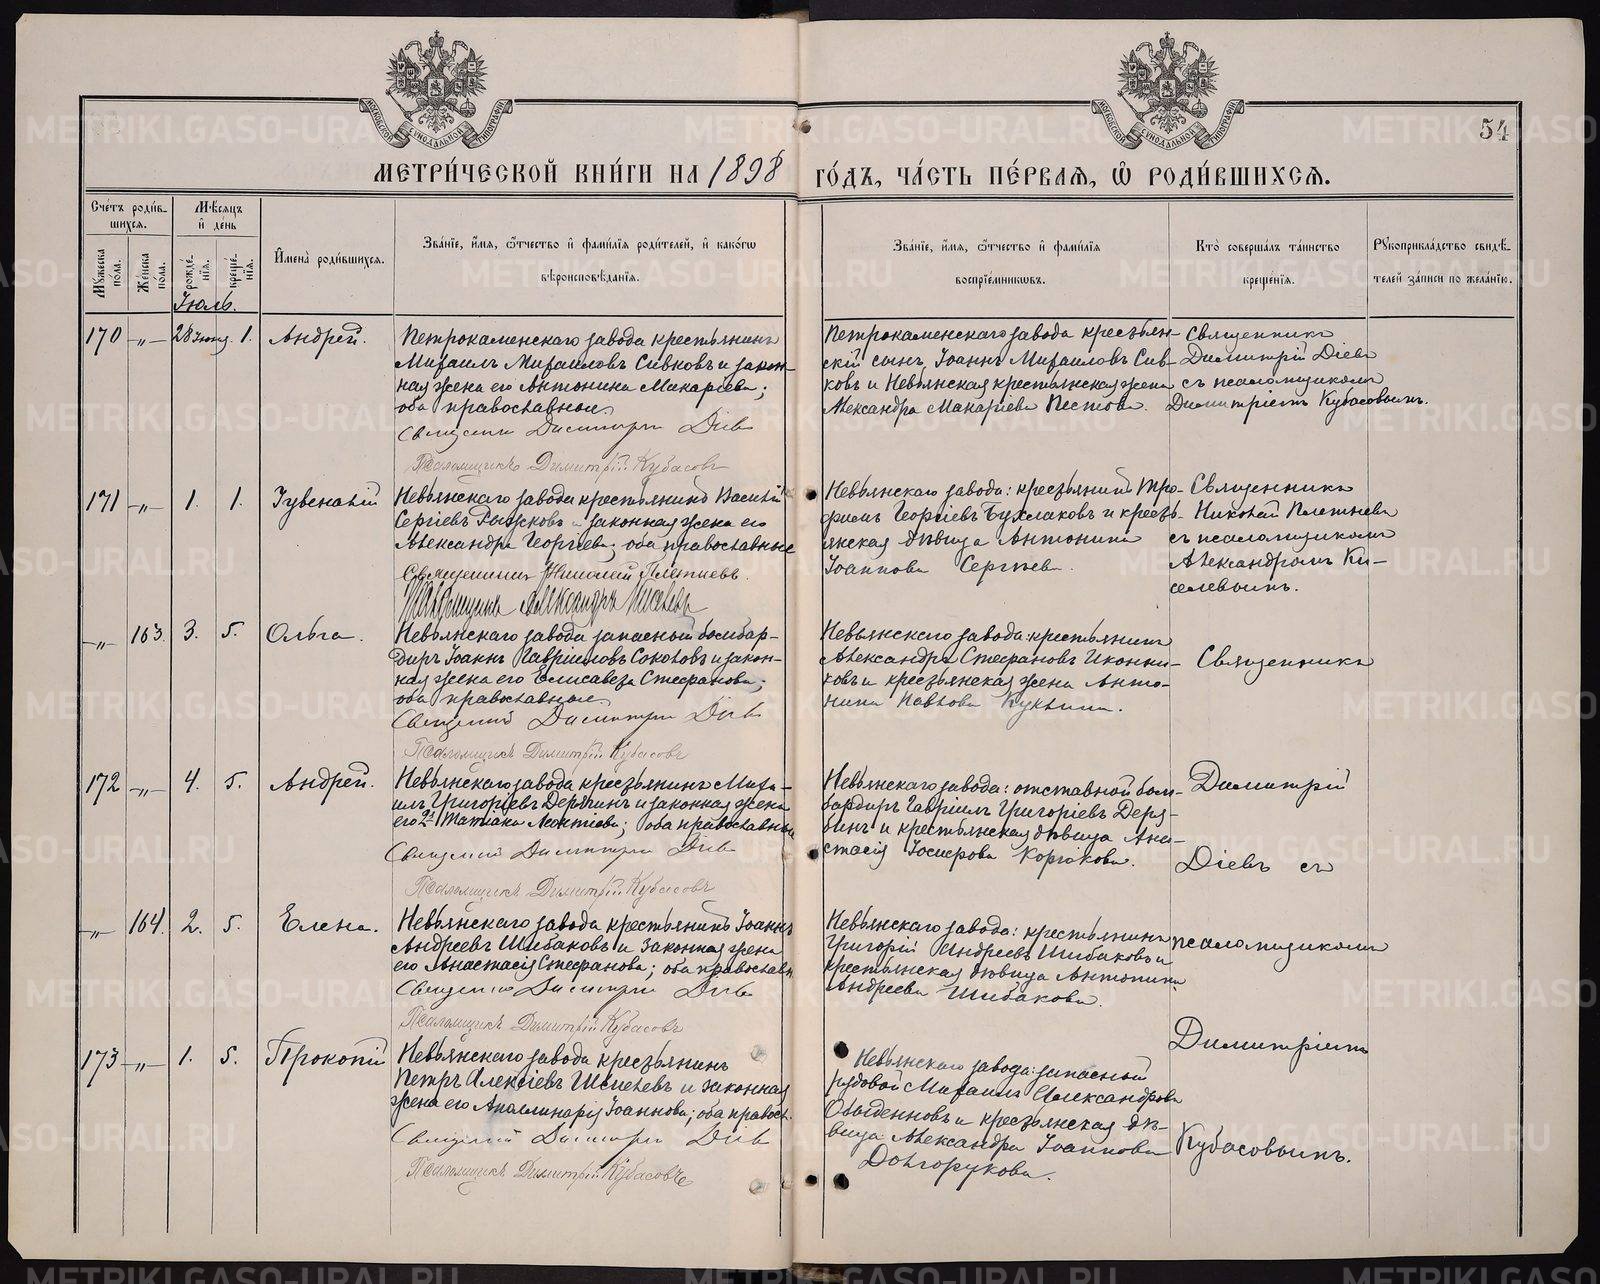 54
МЕТРИ́ЧЕСКОЙ КНИ́ГИ НА 1898 ГО́ДЪ, ЧА́СТЬ ПЕ́РВАѦ, Ѽ РОДИ́ВШИХСѦ.
Счётъ роди́в-
шихсѧ.
Му́жеска пола.
Же́нска по́ла.
Мѣ́сяцъ
и҆ де́нь
рожде́-
нїѧ.
креще́-
нїѧ.
Июль.
И҆мена̀ роди́вшихсѧ.
Зва́нїе, и҆́мѧ, ѻ҆́тчество и҆ фами́лїѧ роди́телей, и҆ како́гѡ
вѣроисповѣ́данїѧ.
Зва́нїе, и҆́мѧ, ѻ҆́тчество и҆ фами́лїѧ
воспрїе́мниковъ.
Кто̀ соверша́лъ та́инство
креще́нїѧ.
Рꙋкоприкла́дство свидѣ́-
телей за́писи по жела́нїю.
170 -„- 28 июня. 1. Андрей.
Петрокаменскаго завода крестьянинъ
Михаилъ Михаиловъ Сивковъ и закон-
ная жена его Антонина Макаріева;
оба православные
Священникъ Димитрій Діевъ
Псаломщикъ Димитрій Кубасовъ
Петрокаменскаго завода крестьян-
скій сынъ Іоаннъ Михаиловъ Сив-
ковъ и Невьянская крестьянская жена
Александра Макаріева Пестова.
Священникъ
Димитрій Діевъ
съ псаломщикомъ
Димитріемъ Кубасовымъ.
171 -„- 1. 1. Іувеналій
Невьянскаго завода крестьянинъ Василій
Сергіевъ Рыжковъ и законная жена его
Александра Георгіева; оба православные
Священникъ Николай Плетневъ
Псаломщикъ Александръ Киселевъ
Невьянскаго завода: крестьянинъ Тро-
фимъ Георгіевъ Бухмаковъ и кресть-
янская дѣвица Антонина
Іоаннова Сергѣева.
Священникъ
Николай Плетневъ
съ псаломщикомъ
Александромъ Ки-
селевымъ.
-„- 163. 3. 5. Ольга.
Невьянскаго завода запасный бомбар-
диръ Іоаннъ Гавріиловъ Соколовъ и закон-
ная жена его Елисавета Стефанова;
оба православные
Священникъ Димитрій Діевъ
Псаломщикъ Димитрій Кубасовъ
Невьянскаго завода: крестьянинъ
Александръ Стефановъ Иконни-
ковъ и крестьянская жена Анто-
нина Павлова Куклина.
Священникъ
172 -„- 4. 5. Андрей.
Невьянскаго завода крестьянинъ Миха-
илъ Григоріевъ Дерябинъ и законная жена
его 2я Татіана Леонтіева; оба православные
Священникъ Димитрій Діевъ
Псаломщикъ Димитрій Кубасовъ
Невьянскаго завода: отставной бом-
бардиръ Гавріилъ Григоріевъ Деря-
бинъ и крестьянская дѣвица Ана-
стасія Іосифова Корюкова.
Димитрій
Діевъ съ
-„- 164. 2. 5. Елена.
Невьянскаго завода крестьянинъ Іоаннъ
Андреевъ Шибаковъ и законная жена
его Анастасія Стефанова; оба православн
Священникъ Димитрій Діевъ
Псаломщикъ Димитрій Кубасовъ
Невьянскаго завода: крестьянинъ
Григорій Андреевъ Шибаковъ и
крестьянская дѣвица Антонина
Андреева Шибакова.
псаломщикомъ
173 -„- 1. 5. Прокопій
Невьянскаго завода крестьянинъ
Петръ Алексіевъ Шмелевъ и законная
жена его Аполлинарія Іоаннова; оба правосл.
Священникъ Димитрій Діевъ
Псаломщикъ Димитрій Кубасовъ
Невьянскаго завода: запасной
рядовой Михаилъ Александровъ
Обыденновъ и крестьянская дѣ-
вица Александра Іоаннова
Долгорукова.
Димитріемъ
Кубасовымъ.